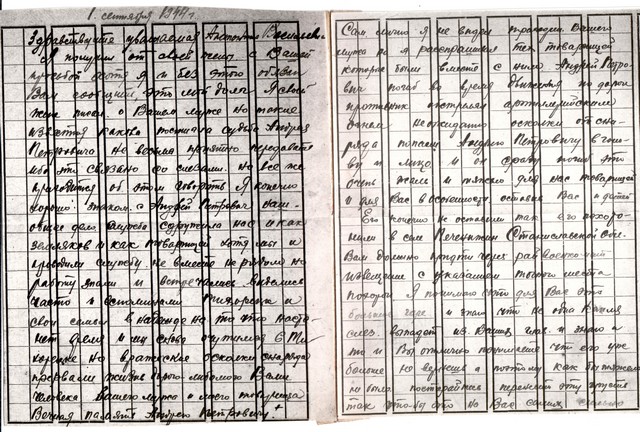 1. сентября 1944 г.
Здравствуйте уважаемая Антонина Васильевна
Я получил от своей жены с Вашей
просьбой хотя я и без этого обязан
Вам сообщить, это мой долг. Я своей
жене писал о Вашем муже но такие
известия какова постигла судьба Андрея
Петровича не весьма приятно передавать
ибо эти связано до слезами. но все же
приходится об этом говорить Я конечно
хорошо знаком с Андрей Петрович наше
общее дело служба сдружила нас и как
земляков и как товарищей хотя мы и
проводили службу не вместе но рядом но
работу знали и встречались виделись
часто и вспоминали Тихорецк и
свои семьи в надежде на то что наста-
нет время и мы снова очутимся в Ти-
хорецке но вражеские осколки снаряда
прервали жизнь дорого любимого Вами
человека Вашего мужа и моего товарища
Вечная память Андрею Петровичу +
Сам лично я не видел трагедии Вашего
мужа но я расспрашивал тех товарищей
которые были вместе с ним. Андрей Петро-
вич погиб во время движения по дороге
противник обстрелял артиллерийским
огнем неожиданно осколки от сна-
ряда попали Андрею Петровичу в голо-
ву и лицо и он сразу погиб это
очень жаль и тяжело для нас товарищей
и для Вас в особенности оставил Вас и детей
Его конечно не оставили так его похоро-
нили в селе Печенижин Станиславской обл.
Вам должно придти через райвоенкомат
извещение с указанием точного места
похорон Я понимаю что для Вас это
большое горе и знаю что не одна капля
слез выпадет из Ваших глаз. и знаю и
то и Вы отлично понимаете что его уже
больше не вернешь а поэтому как бы тяжело
ни было постарайтесь перенести эту
так чтобы это на Вас самих сильно